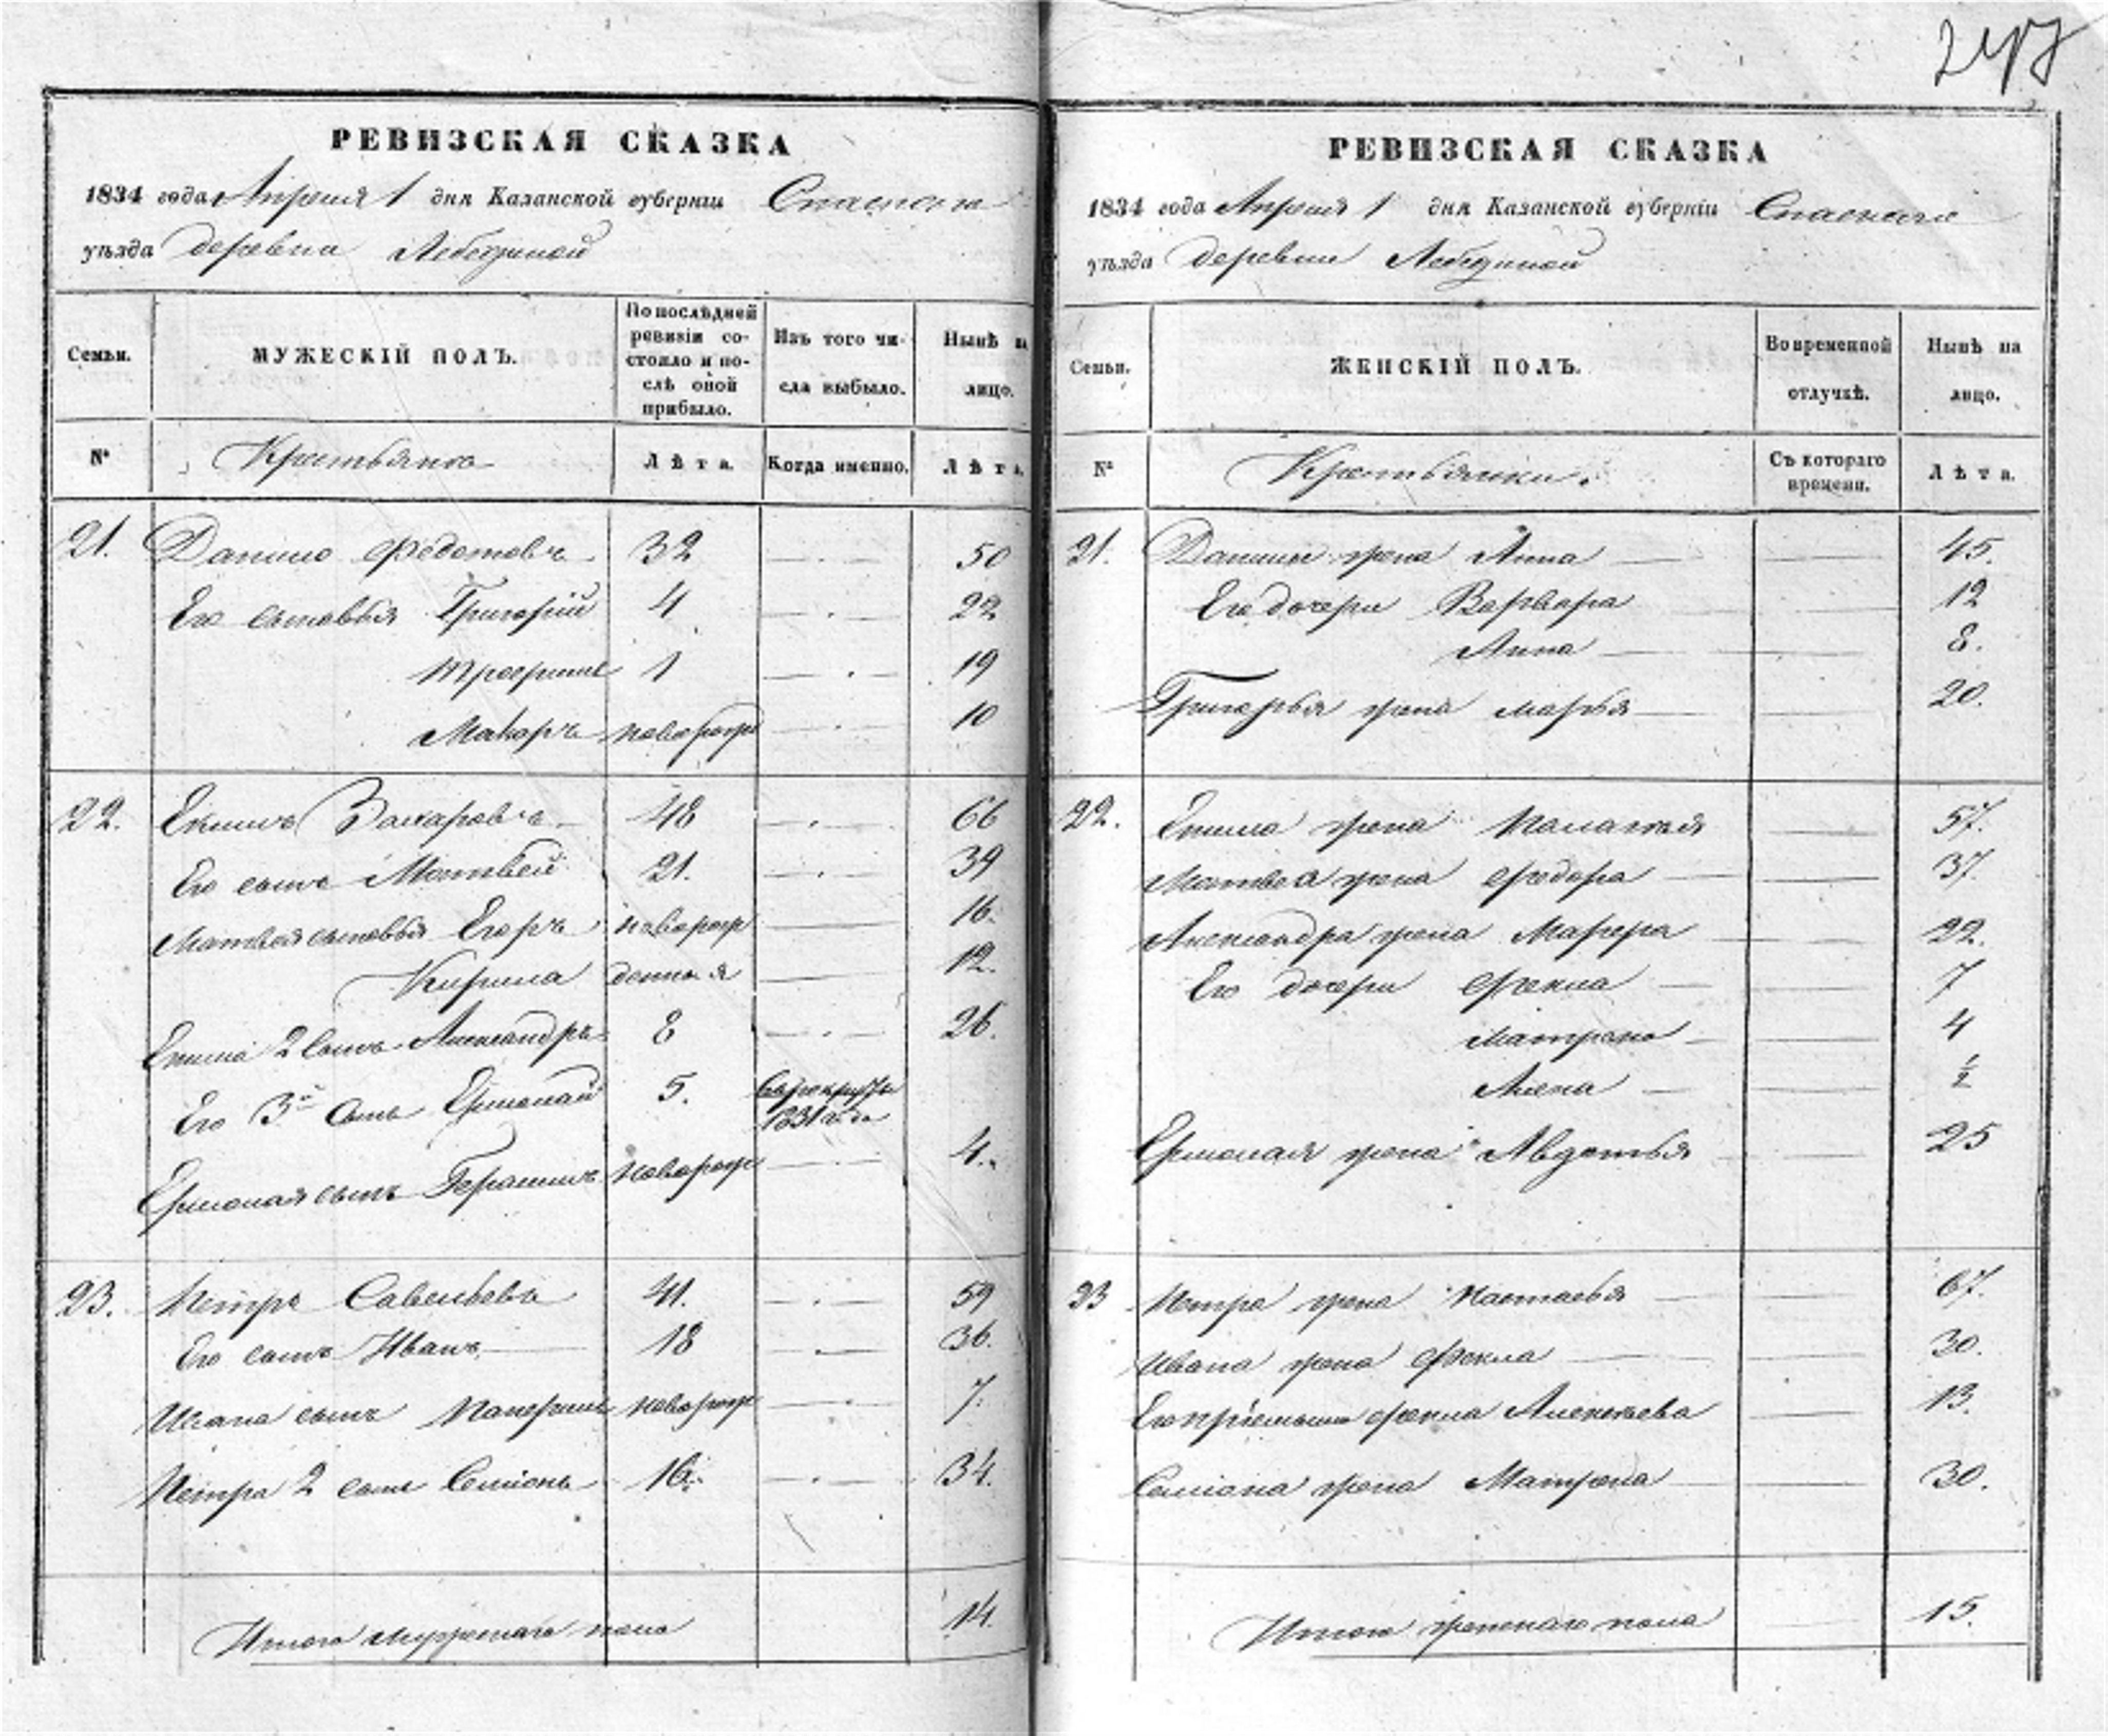 247
РЕВИЗСКАЯ СКАЗКА
1834 года Апреля 1 дня Казанской губерніи Спаскаго
уѣзда деревни Лебединой
Семьи.
МУЖЕСКІЙ ПОЛЪ.
По послѣдней ревизіи состояло и послѣ оной прибыло.
Изъ того числа выбыло.
Нынѣ на лицо.
№
Крестьяне
Лѣта.
Когда именно.
Лѣта.
21. Данило Федотовъ 32 50
Его сыновья Григорій 4 22
Трофимъ 1 19
Макаръ новорож 10
22. Екимъ Захаровъ 48 66
Его сынъ Матвей 21. 39
Матвея сыновья Егоръ новорож 16.
Кирила денныя 12.
Екима 2 сынъ Александръ 8 26.
Его 3й сынъ Ермолай 5. в рекруты 1831 года
Ермолая сынъ Герасимъ новорож 4.
23. Петръ Савельевъ 41. 59
Его сынъ Иванъ 18 36.
Ивана сынъ новорож 7.
Петра 2 сынъ Семіонъ 16. 34.
Итого мужескаго пола 14.
РЕВИЗСКАЯ СКАЗКА
1834 года Апреля 1 дня Казанской губерніи Спаскаго
уѣзда деревни Лебединой
Семьи.
ЖЕНСКІЙ ПОЛЪ.
Во временной отлучкѣ.
Нынѣ на лицо.
№
Крестьянки.
Съ котораго времени.
Лѣта.
21. Данилы жена Анна 45.
Его дочери Варвара 12
Анна 8.
Григорья жена Марья 20.
22. Екима жена Палагея 57.
Матвея жена Федора 37.
Александра жена Марфа 22.
Его дочери Фекла 7
Матрена 4
Алена ½
Ермолая жена Авдотья 25
23 Петра жена Настасья 67.
Ивана жена Фекла 30.
Его пріемышъ Фекла Алексѣева 13.
Семіона жена Матрена 30.
Итого женскаго пола 15.